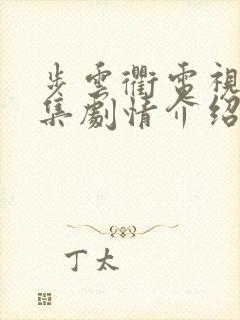 步雲衢電視
集劇情介紹
丁太